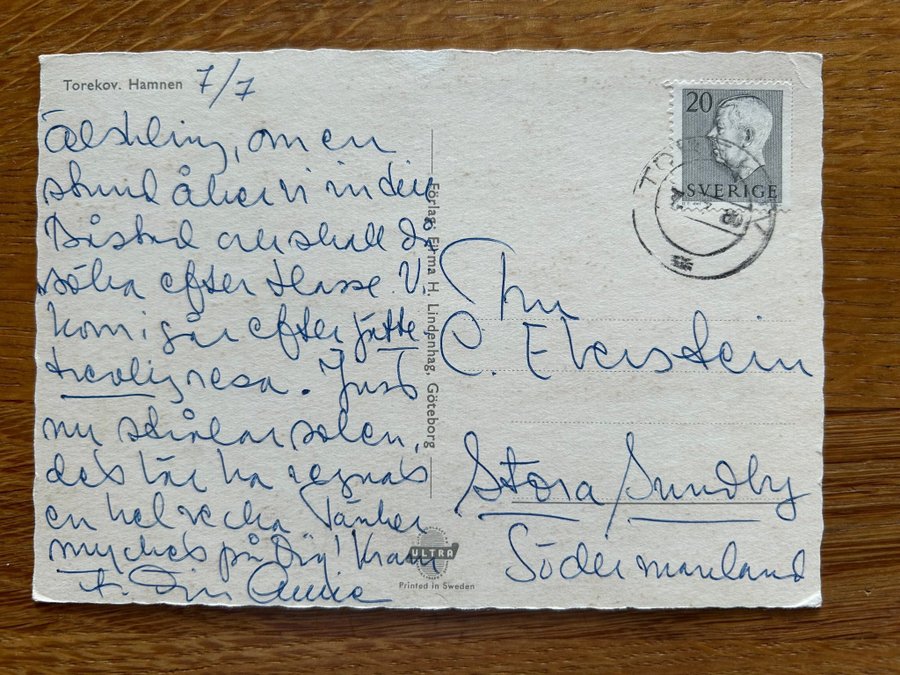 Torekov. Hamnen
7/7
Älskling, om en
stund åker vi in till
Båstad och skall då
söka efter Hasse. Vi
kom igår efter jätte
trevlig resa. Just
nu strålar solen,
det lär ha regnat
en hel vecka. Tänker
mycket på Dig! Kram
fr. Din Annie
Förlag: Firma H. Lindenhag, Göteborg
ULTRA
Printed in Sweden
20
SVERIGE
TOREKOV
Fru
C. Eberstein
Stora Sundby
Södermanland